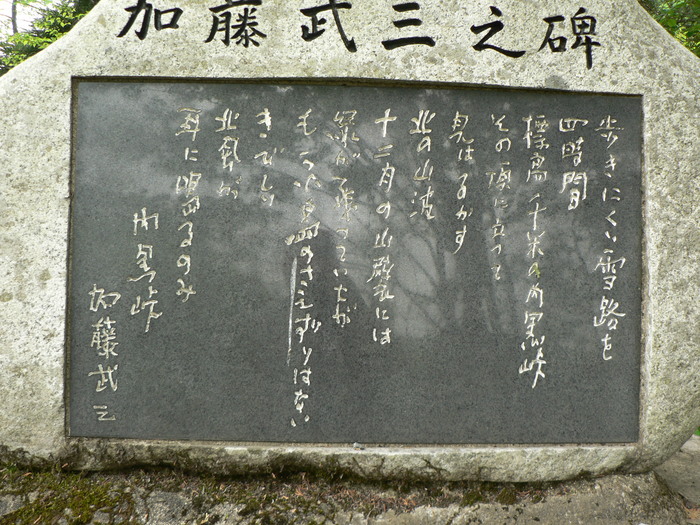 加藤武三之碑
歩きにくい雪路を
四時間
標高 千米の 黒峠
その頂に立って
見はるかす
北の山波
十二月の山襞には
が っていたが
もう小鳥のさえずりはない
きびしい
北風が
耳に鳴るのみ
黒峠
加藤武三